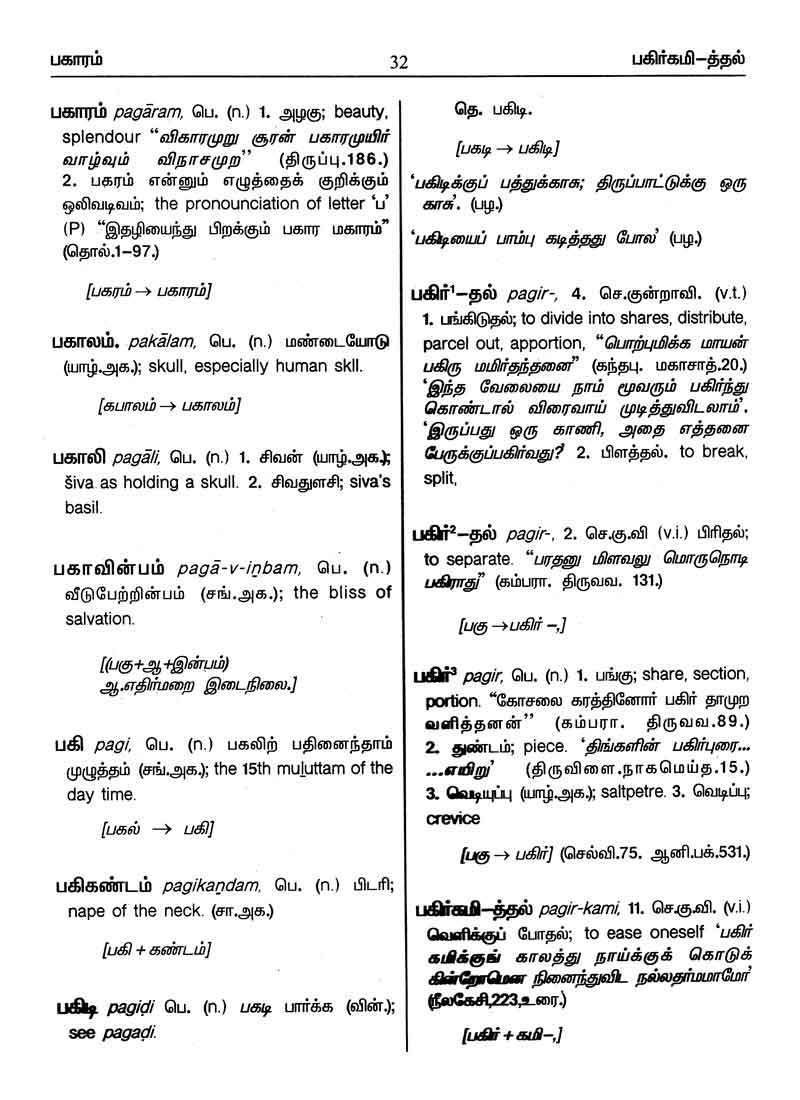 பகாரம்
32
பகிர்கமி–த்தல்
பகாரம் pagāram, பெ. (n.) 1. அழகு; beauty,
splendour “விகாரமுறு சூரன் பகாரமுயிர்
வாழ்வும் விநாசமுற’’ (திருப்பு.186.)
2. பகரம் என்னும் எழுத்தைக் குறிக்கும்
ஒலிவடிவம்; the pronounciation of letter ‘ப’
(P) “இதழியைந்து பிறக்கும் பகார மகாரம்”
(தொல்.1–97.)
[பகரம் → பகாரம்]
பகாலம். pakālam, பெ. (n.) மண்டையோடு
(யாழ்.அக.); skull, especially human skll.
[கபாலம் → பகாலம்]
பகாலி pagāli, பெ. (n.) 1. சிவன் (யாழ்.அக.);
šiva as holding a skull. 2. சிவதுளசி; siva's
basil.
பகாவின்பம் pagā-v-iṉbam, பெ. (n.)
வீடுபேற்றின்பம் (சங்.அக.); the bliss of
salvation.
[(பகு+ஆ+இன்பம்)
ஆ.எதிர்மறை இடைநிலை.]
பகி pagi, பெ. (n.) பகலிற் பதினைந்தாம்
முழுத்தம் (சங்.அக.); the 15th muḻuttam of the
day time.
[பகல் → பகி]
பகிகண்டம் pagikaṇdam, பெ. (n.) பிடரி;
nape of the neck. (சா.அக.)
[பகி + கண்டம்]
பகிடி pagiḍi பெ. (n.) பகடி பார்க்க (வின்.);
see pagaḍi.
தெ. பகிடி.
[பகடி → பகிடி]
‘பகிடிக்குப் பத்துக்காசு; திருப்பாட்டுக்கு ஒரு
காசு’. (பழ.)
‘பகிடியைப் பாம்பு கடித்தது போல’ (பழ.)
பகிர்¹–தல் pagir-, 4. செ.குன்றாவி. (v.t.)
1. பங்கிடுதல்; to divide into shares, distribute,
parcel out, apportion, “பொற்புமிக்க மாயன்
பகிரு மமிர்தந்தனை” (கந்தபு. மகாசாத்.20.)
‘இந்த வேலையை நாம் மூவரும் பகிர்ந்து
கொண்டால் விரைவாய் முடித்துவிடலாம்’.
‘இருப்பது ஒரு காணி, அதை எத்தனை
பேருக்குப்பகிர்வது?’ 2. பிளத்தல். to break,
split,
பகிர்²–தல் pagir-, 2. செ.கு.வி (v.i.) பிரிதல்;
to separate. “பரதனு மிளவலு மொருநொடி
பகிராது” (கம்பரா. திருவவ. 131.)
[பகு →பகிர் –,]
பகிர்³ pagir, பெ. (n.) 1. பங்கு; share, section,
portion. “கோசலை கரத்தினோர் பகிர் தாமுற
வளித்தனன்’’ (கம்பரா. திருவவ.89.)
2. துண்டம்; piece. ‘திங்களின் பகிர்புரை...
...எயிறு’ (திருவிளை.நாகமெய்த.15.)
3. வெடியுப்பு (யாழ்.அக.); saltpetre. 3. வெடிப்பு;
crevice
[பகு → பகிர்] (செல்வி.75. ஆனி.பக்.531.)
பகிர்கமி–த்தல் pagir-kami, 11. செ.கு.வி. (v.i.)
வெளிக்குப் போதல்; to ease oneself ‘பகிர்
கமிக்குங் காலத்து நாய்க்குக் கொடுக்
கின்றோமென நினைந்துவிட நல்லதர்மமாமோ’
(நீலகேசி,223,உரை.)
[பகிர் + கமி–,]